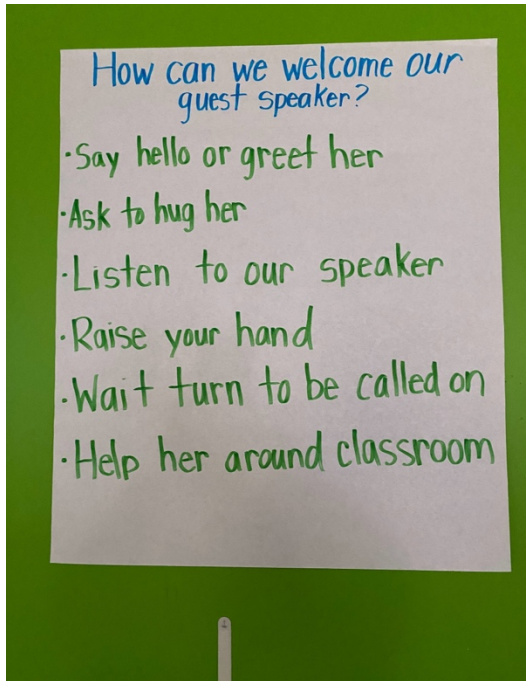 How can we welcome our
guest speaker?
·Say hello or greet her
·Ask to hug her
·Listen to our speaker
·Raise your hand
·Wait turn to be called on
·Help her around classroom